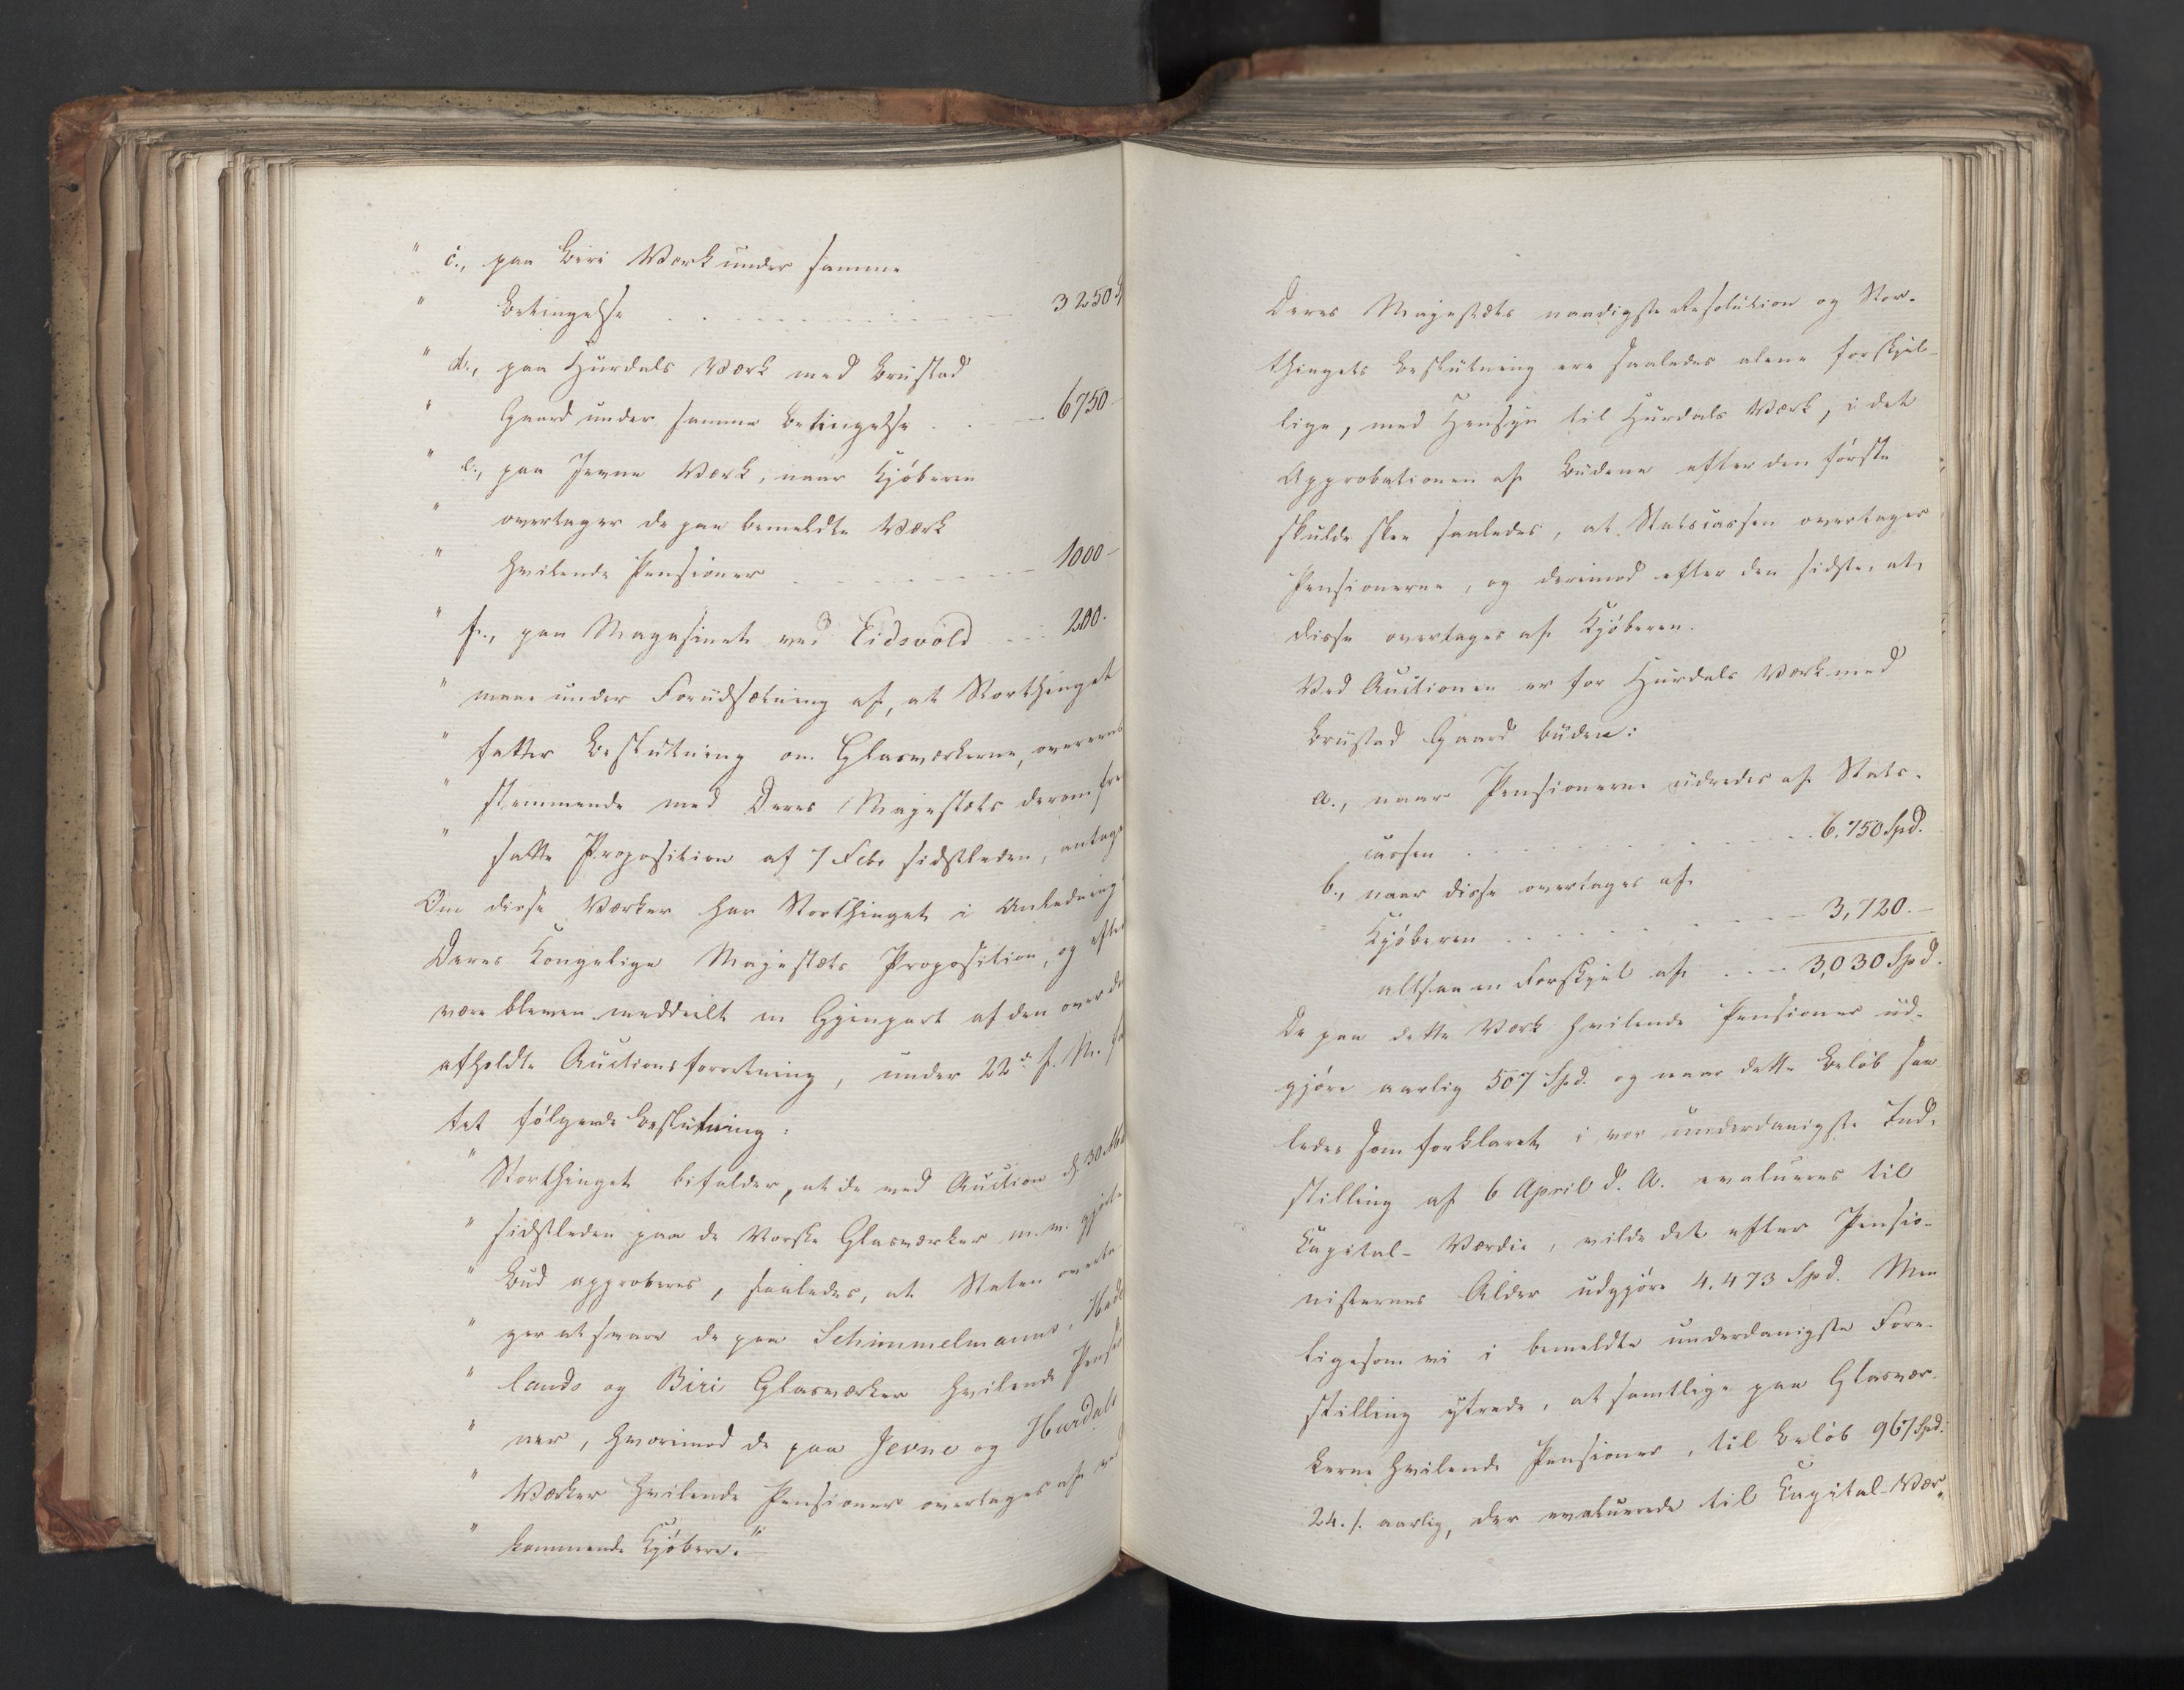 " c., paa Biri Værk under samme
" Betingelse . . . . . . . . . . 3250
" d., paa Hurdals Værk med Brustad
" Gaard under samme Betingelse . . . 6750 -
" e., paa Jevne Værk, naar Kjøberen
" overtager de paa bemeldte Værk
" hvilende Pensioner . . . . . . . 1000 -
" f., paa Magasinet ved Eidsvold . . . 200.
" mane under Forudsætning af, at Storthinget
" fatter Beslutning om Glasværkerne, overeens
" stemmende med Deres Majestæts derom fre
" satte Proposition af 7 Febr sidstleden, antage
Om disse Værker har Storthinget i Anledning
Deres Kongelige Majestæts Proposition, og efter
være bleven meddeelt en Gjenpart af den over de
afholdte Auctionsforretning, under 22de f. M. fa
tet følgende Beslutning:
" Storthinget bifalder, at de ved Auction d. 30 
" sidstleden paa de Norske Glasværker m.m. gjorte
" Bud approberes, saaledes, at Staten overta
" ger at svare de paa Schimmelmanns, Hade
" lands og Biri Glasværker hvilende Pensio
" ner, hvorimod de paa Jevne og Hurdals
" Værker hvilende Pensioner overtages af ved
" kommende Kjøbere."
Deres Majestæts naadigste Resolution og Stor-
thingets Beslutning ere saaledes alene forskjel-
lige, med Hensyn til Hurdals Værk, i det
Approbationen af Budene efter den første
skulde skee saaledes, at Statscassen overtager
Pensionerne, og derimod efter den sidste, at
disse overtages af Kjøberen.
Ved Auctionen er for Hurdals Værk med
Brustad Gaard buden:
a., naar Pensionerne udredes af Stats-
cassen . . . . . . . . . . 6,750 Spd.
b., naar disse overtages af
Kjøberen . . . . . . . . . 3,720. -
altsaa en Forskjel af . . . 3,030 Spd.
De paa dette Værk hvilende Pensioner ud-
gjøre aarlig 507 Spd. og naar dette Beløb saa
ledes som forklaret i vor underdanigste Ind-
stilling af 6 April d. A. evalueres til
Kapital-Værdie, vilde det efter Pensio-
nisternes Alder udgjøre 4,473 Spd. Men
ligesom vi i bemeldte underdanigste Fore-
stilling yttrede, at samtlige paa Glasvær-
kerne hvilende Pensioner, til Beløb 967 Spd.
24. s. aarlig, der evaluerede til Kapital-Vær